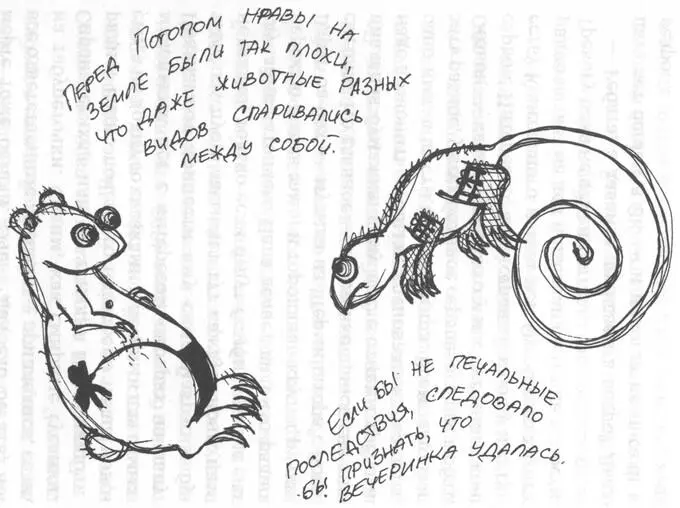 Перед Потопом нравы на
земле были так плохи,
что даже животные разных
видов спаривались
между собой.
Если бы не печальные
последствия, следовало
бы признать, что
вечеринка удалась.